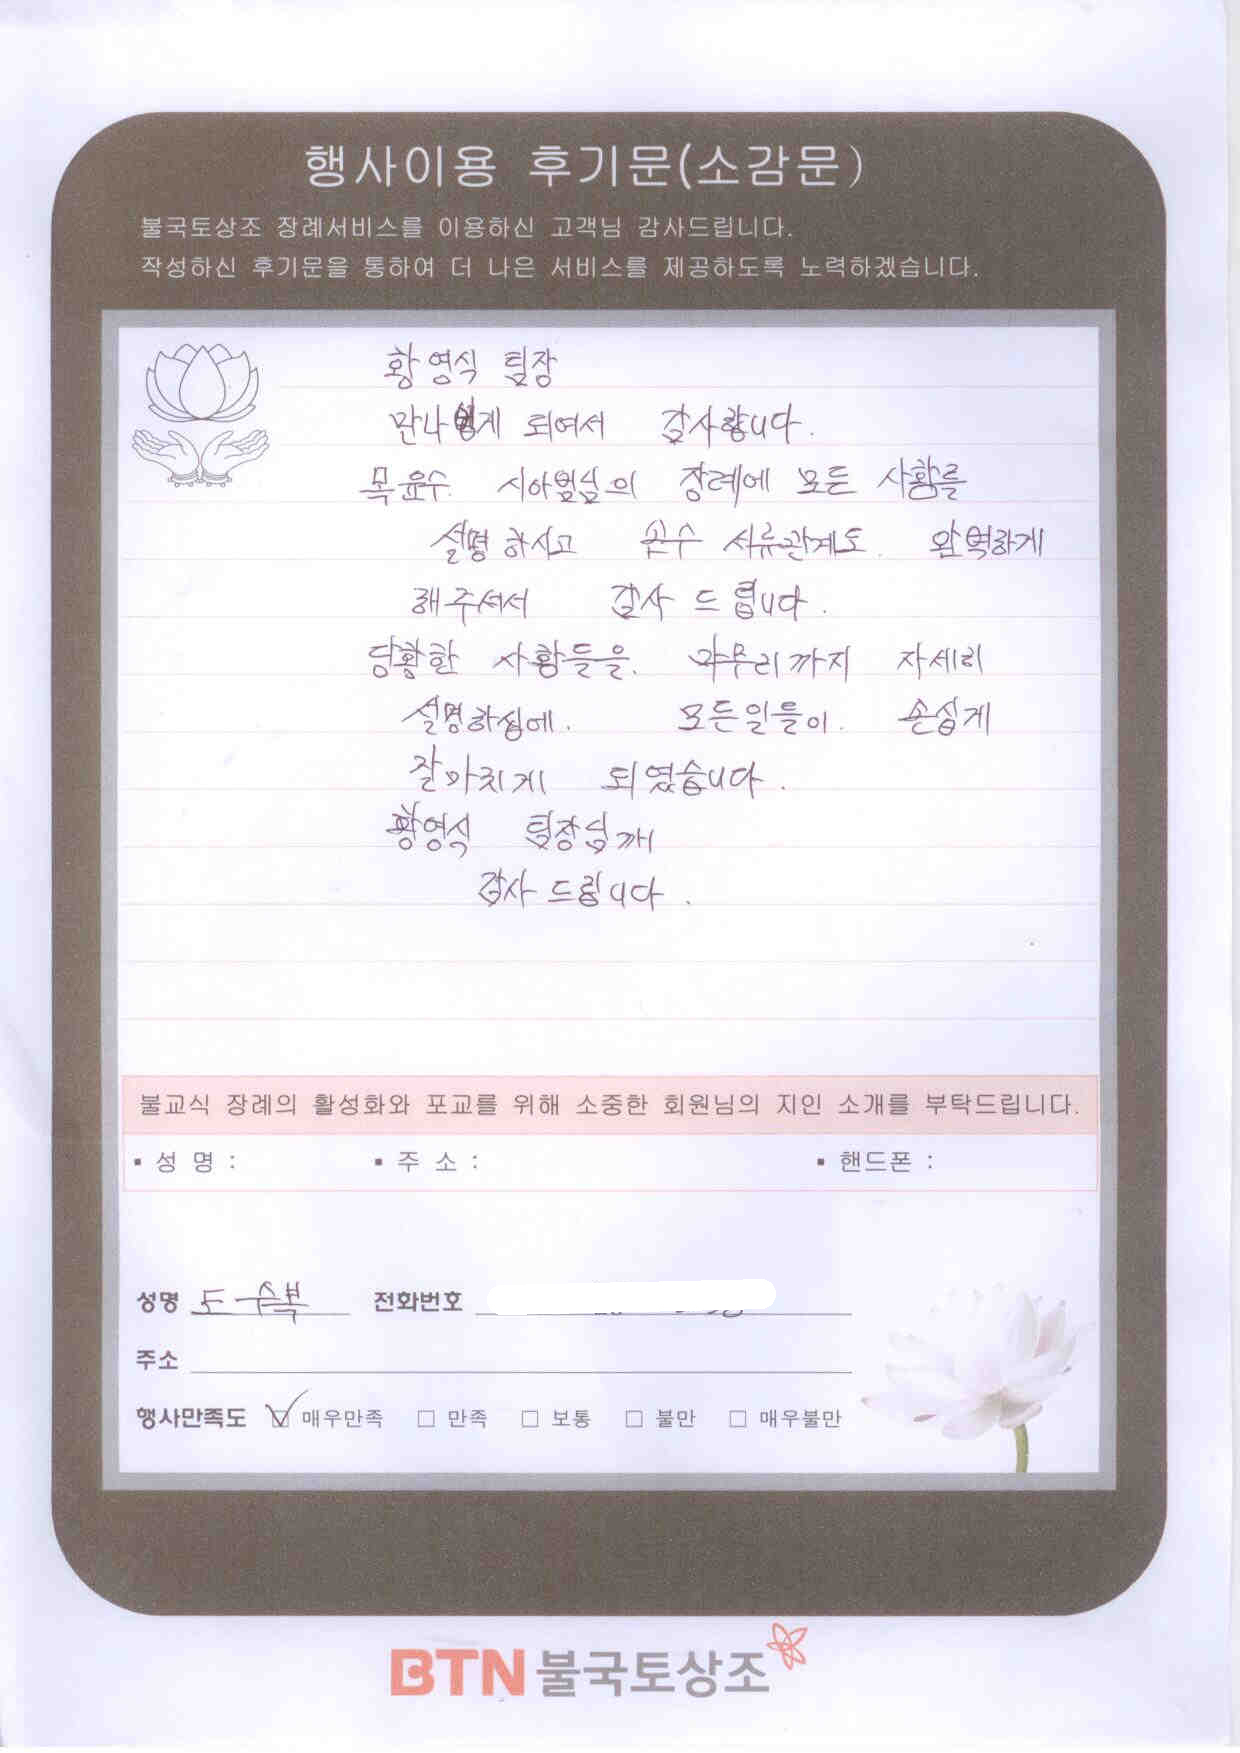 행사이용 후기문(소감문)
불국토상조 장례서비스를 이용하신 고객님 감사드립니다.
작성하신 후기문을 통하여 더 나은 서비스를 제공하도록 노력하겠습니다.
황영식 팀장
만나 게 되여서 감사합니다.
목윤수. 시아범님의 장례에 모든 사황를
설명 하시고 손수 서류관계도. 완벽하게
해주셔서 감사 드립니다.
당황한 사황들을. 마무리까지 자세히
설명하심에. 모든일들이. 손쉽게
잘마치게 되였습니다.
황영식 팀장님께
감사 드립니다.
불교식 장례의 활성화와 포교를 위해 소중한 회원님의 지인 소개를 부탁드립니다.
▪ 성 명 : ▪ 주 소 : ▪ 핸드폰 :
성명 도수복 전화번호
주소
행사만족도 ☑ 매우만족 □ 만족 □ 보통 □ 불만 □ 매우불만
BTN 불국토상조